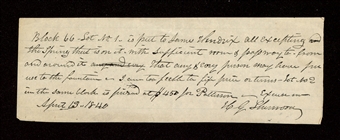 Block 66 - Lot No 1 - is put to James Hendrix all excepting
the Spring that is on it - with sufficient room & passway to, from
and around it, that any & every person may have free
use to the fountain - I am too feeble to fix price or terms - Lot No 2
in the same block is priced at $450 for Patterson - Excuse me
April 13 - 1840
H. G.